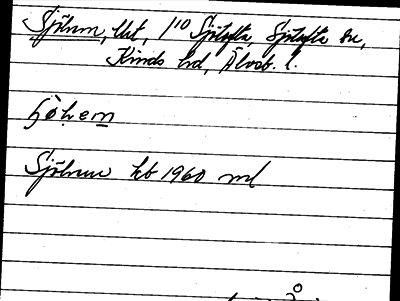 Sjöhem, lht, 1/10 Sjötofta, Sjötofta sn,
Kinds hd, Älvsb. l.
ʃö̀hem
Sjöhem kb 1960 ml